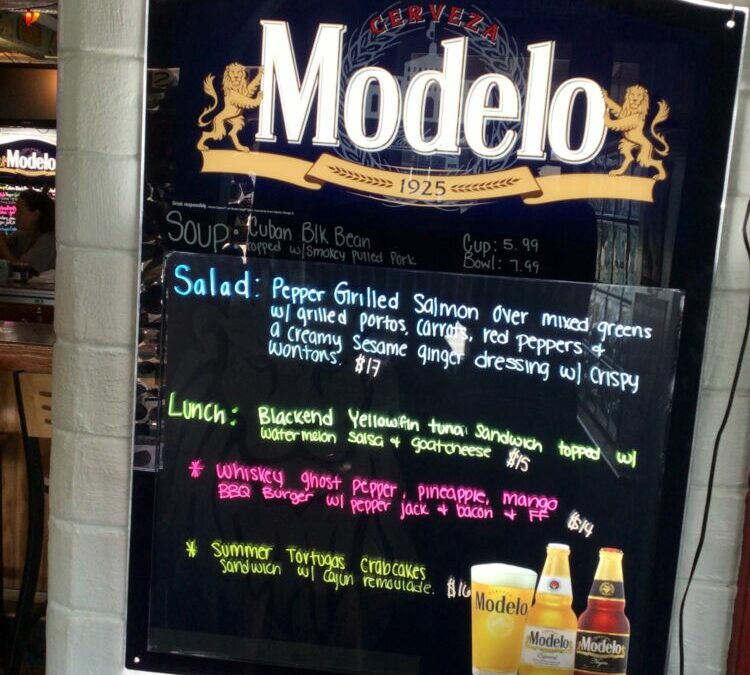 CERVEZA
Modelo
1925
Drink responsibly.
SOUP: Cuban Blk Bean
topped w/smokey pulled pork
Cup: 5.99
Bowl: 7.99
Salad: Pepper Grilled Salmon over mixed greens
w/ grilled portos, carrots, red peppers &
a creamy Sesame ginger dressing w/ crispy
wontons. $17
Lunch: Blackend Yellowfin tuna Sandwich topped w/
watermelon salsa & goatcheese $15
* Whiskey ghost pepper, pineapple, mango
BBQ Burger w/ pepper jack & bacon & FF $14
* Summer Tortugas Crabcakes
Sandwich w/ cajun remoulade. $16
Modelo
Modelo
Especial
Modelo
Negra
Modelo